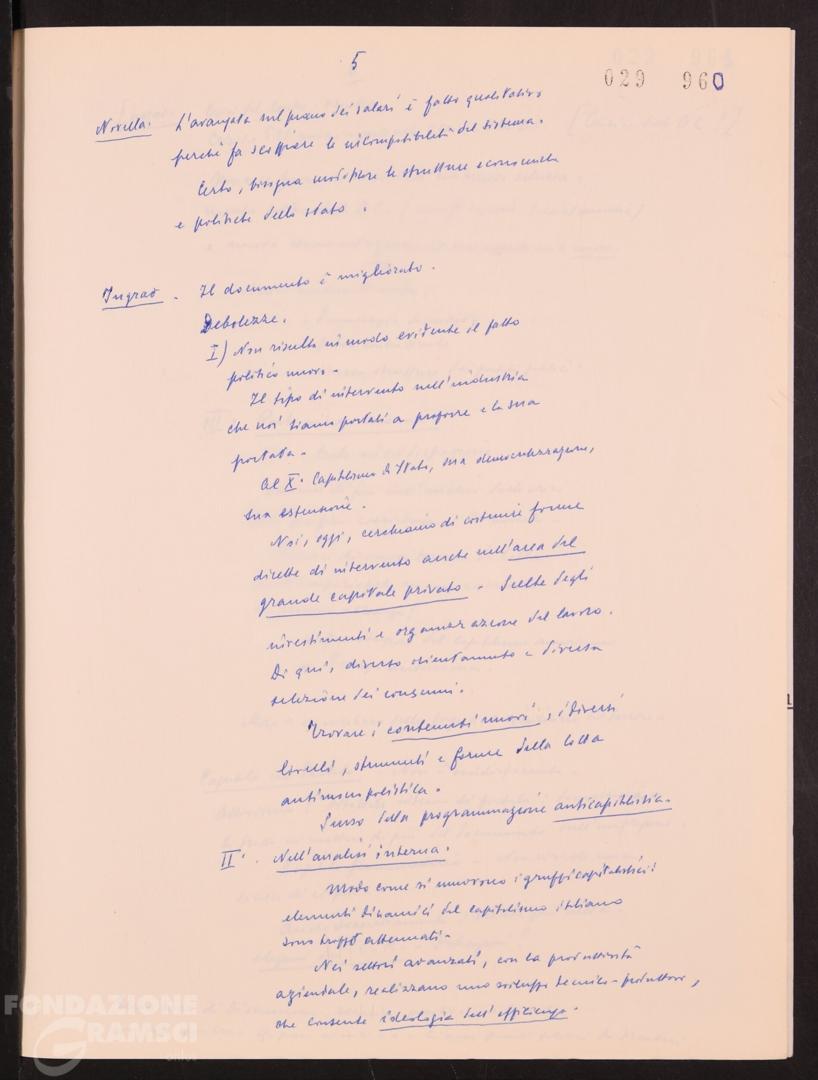 5
029 960
Novella. L'avanzata sul piano dei salari è fatto qualitativo
perché fa scoppiare le incompatibilità del sistema.
Certo, bisogna modificare le strutture economiche
e politiche dello stato.
Ingrao - Il documento è migliorato.
Debolezze.
I) Non risulta in modo evidente il fatto
politico nuovo -
Il tipo di intervento nell'industria
che noi siamo portati a proporre e la sua
portata -
Al X° Capitalismo di Stato, sua democratizzazione,
sua estensione.
Noi, oggi, cerchiamo di costruire forme
dirette di intervento anche nell'area del
grande capitale privato - Scelte degli
investimenti e organizzazione del lavoro.
Di qui, diverso orientamento e diversa
selezione dei consumi.
Trovare i contenuti nuovi, i diversi
livelli, strumenti e forme della lotta
antimonopolistica.
Senso della programmazione anticapitalistica.
II°. Nell'analisi interna.
Modo come si muovono i gruppi capitalistici:
elementi dinamici del capitalismo italiano
sono troppo attenuati -
Nei settori avanzati, con la produttività
aziendale, realizzano uno sviluppo tecnico-produttivo,
che consente ideologia dell'efficienza.
FONDAZIONE
GRAMSCI